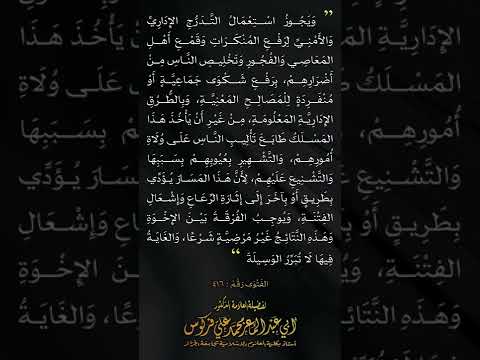 " وَيَجُوزُ اسْتِعْمَالُ التَّدَرُّجِ الإِدَارِيِّ
وَالأَمْنِيِّ لِرَفْعِ المُنْكَرَاتِ وَقَمْعِ أَهْلِ
المَعَاصِي وَالفُجُورِ وَتَخْلِيصِ النَّاسِ مِنْ
أَضْرَارِهِمْ، بِرَفْعِ شَكْوَى جَمَاعِيَّةٍ أَوْ
مُنْفَرِدَةٍ لِلْمَصَالِحِ المَعْنِيَّةِ، وَبِالطُّرُقِ
الإِدَارِيَّةِ المَعْلُومَةِ، مِنْ غَيْرِ أَنْ يَأْخُذَ هَذَا
المَسْلَكُ طَابَعَ تَأْلِيبِ النَّاسِ عَلَى وُلَاةِ
أُمُورِهِمْ، وَالتَّشْهِيرِ بِعُيُوبِهِمْ بِسَبَبِهَا
وَالتَّشْنِيعِ عَلَيْهِمْ، لِأَنَّ هَذَا المَسَارَ يُؤَدِّي
بِطَرِيقٍ أَوْ بِآخَرَ إِلَى إِثَارَةِ الرَّعَاعِ وَإِشْعَالِ
الفِتْنَةِ، وَيُوجِبُ الفُرْقَةَ بَيْنَ الإِخْوَةِ
وَهَذِهِ النَّتَائِجُ غَيْرُ مَرْضِيَّةٍ شَرْعًا، وَالغَايَةُ
فِيهَا لَا تُبَرِّرُ الوَسِيلَةَ "
الفَتْوَى رَقْمُ : ٤١٦
لفضيلة العلامة الدكتور
أبي عبد المعز محمد علي فركوس